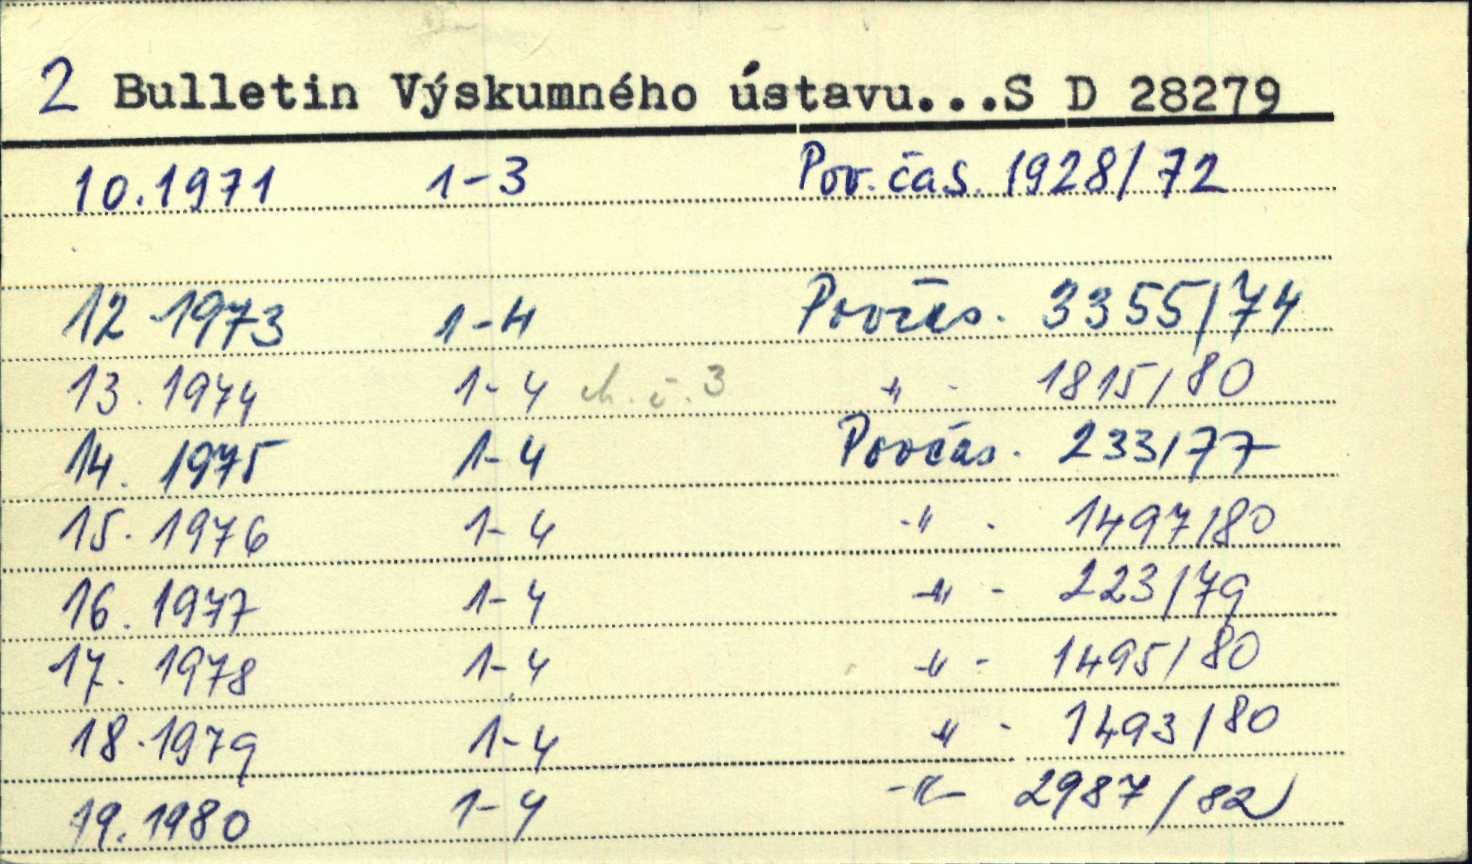 2 Bulletin Výskumného ústavu...S D 28279
10.1971 1-3 Pov. čas. 1928/72
12.1973 1-4 Povčas. 3355/74
13.1974 1-4 ch.č.3 -"- 1815/80
14.1975 1-4 Povčas. 233/77
15.1976 1-4 -"- 1497/80
16.1977 1-4 -"- 223/79
17.1978 1-4 -"- 1495/80
18.1979 1-4 -"- 1493/80
19.1980 1-4 -"- 2987/82